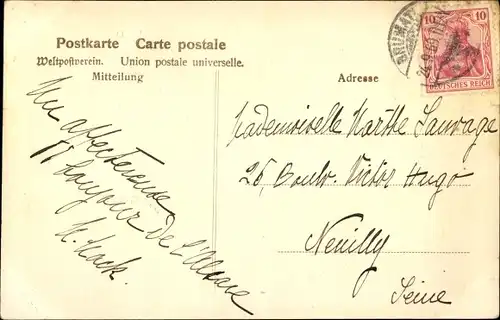 Postkarte Carte postale
Weltpostverein. Union postale universelle.
Mitteilung
Adresse
10 10
DEUTSCHES REICH
BRUMATH
Un affectueux
bonjour de l'Alsace
Mademoiselle Marthe Sauvage
26, Boulv. Victor Hugo
Neuilly
Seine